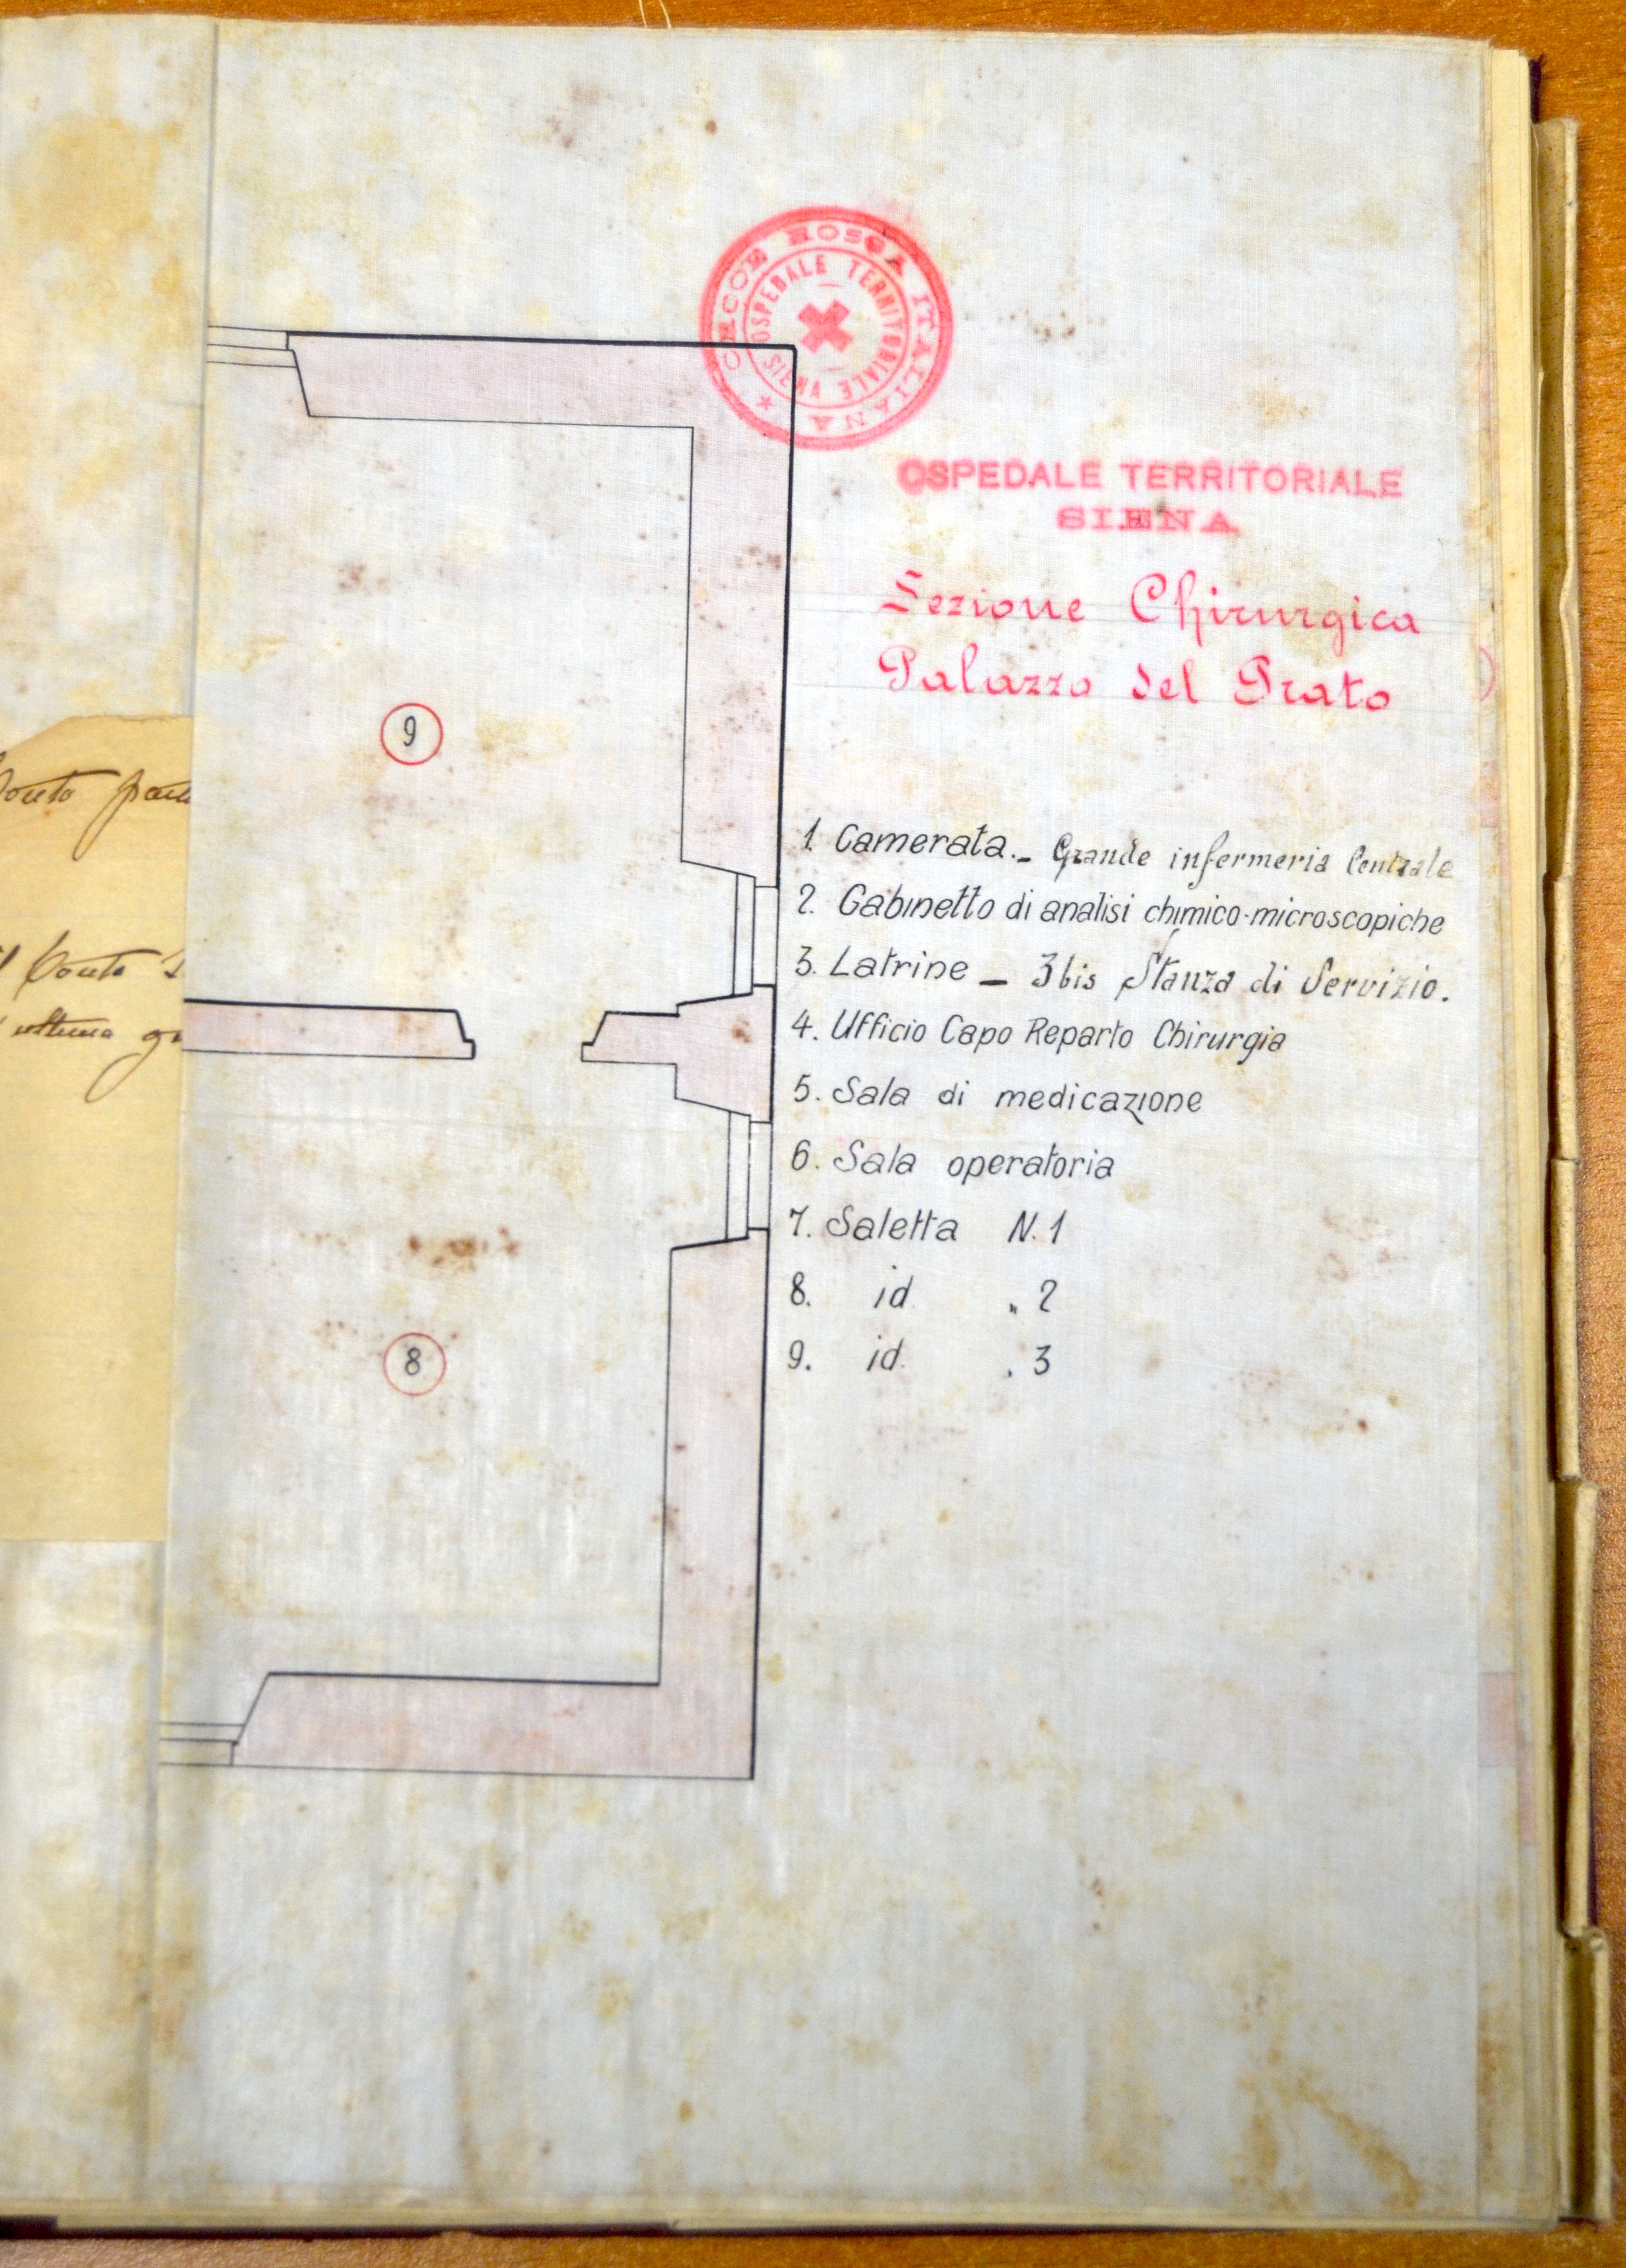 CROCE ROSSA ITALIANA
OSPEDALE TERRITORIALE
OSPEDALE TERRITORIALE
SIENA
Sezione Chirurgica
Palazzo del Prato
9
1. Camerata. - Grande infermeria Centrale
2. Gabinetto di analisi chimico-microscopiche
3. Latrine - 3 bis Stanza di Servizio.
4. Ufficio Capo Reparto Chirurgia
5. Sala di medicazione
6. Sala operatoria
7. Saletta N. 1
8. id. „ 2
9. id. „ 3
8
Conto